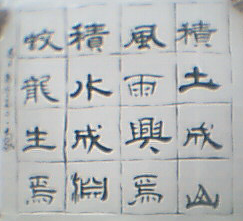 積土成山
風雨興焉
積水成淵
蛟龍生焉